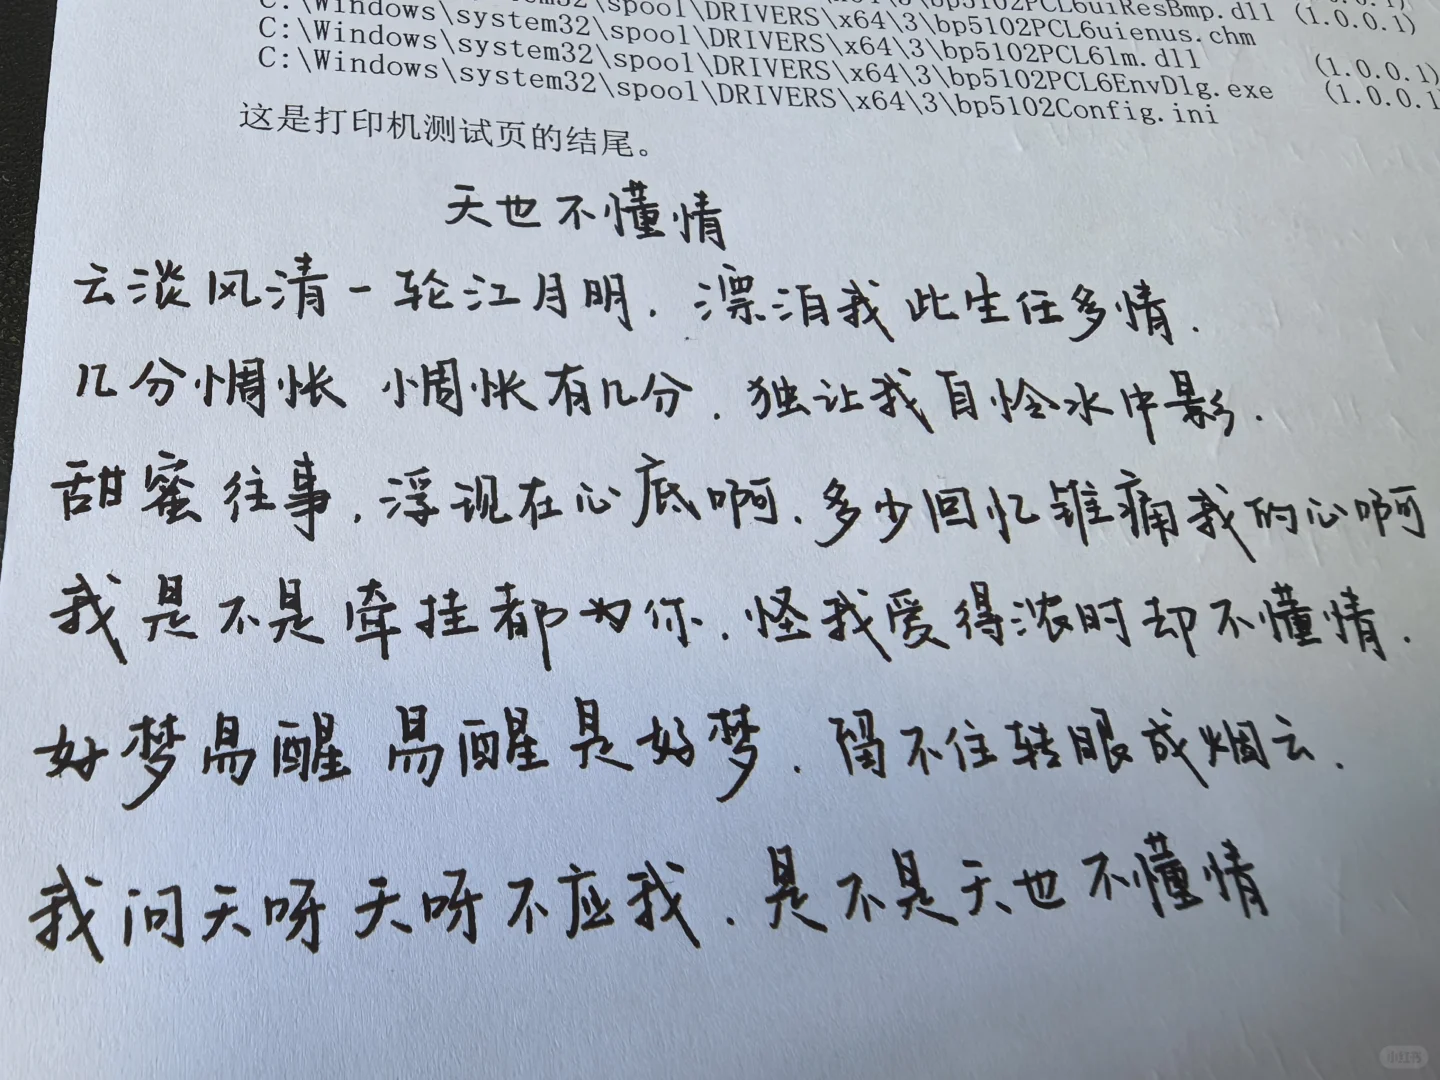 C:\Windows\system32\spool\DRIVERS\x64\3\bp5102PCL6uiResBmp.dll (1.0.0.1)
C:\Windows\system32\spool\DRIVERS\x64\3\bp5102PCL6uienus.chm
C:\Windows\system32\spool\DRIVERS\x64\3\bp5102PCL6lm.dll (1.0.0.1)
C:\Windows\system32\spool\DRIVERS\x64\3\bp5102PCL6EnvDlg.exe (1.0.0.1
C:\Windows\system32\spool\DRIVERS\x64\3\bp5102Config.ini
这是打印机测试页的结尾。
天也不懂情
云淡风清一轮江月明. 漂泊我此生任多情.
几分惆怅 惆怅有几分. 独让我自怜水中影.
甜蜜往事. 浮现在心底啊. 多少回忆锥痛我的心啊
我是不是牵挂都为你. 怪我爱得浓时却不懂情.
好梦易醒 易醒是好梦. 留不住转眼成烟云.
我问天呀天呀不应我. 是不是天也不懂情
小红书